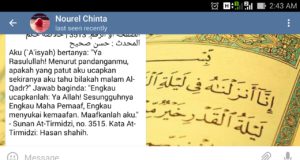 2:43 AM
Nourel Chinta
last seen recently
المحدث : حسن صحيح
Aku (`A'isyah) bertanya: "Ya
Rasulullah! Menurut pandanganmu,
apakah yang patut aku ucapkan
sekiranya aku tahu bilakah malam Al-
Qadr?" Jawab baginda: "Engkau
ucapkanlah: Ya Allah! Sesungguhnya
Engkau Maha Pemaaf, Engkau
menyukai kemaafan. Maafkanlah aku."
- Sunan At-Tirmidzi, no. 3515. Kata At-
Tirmidzi: Hasan shahih.
إِنَّا أَنزَلْنَهُ فِي لَيْلَةِ
لَيْلَةُ الْقَدْرِ خَيْرٌ